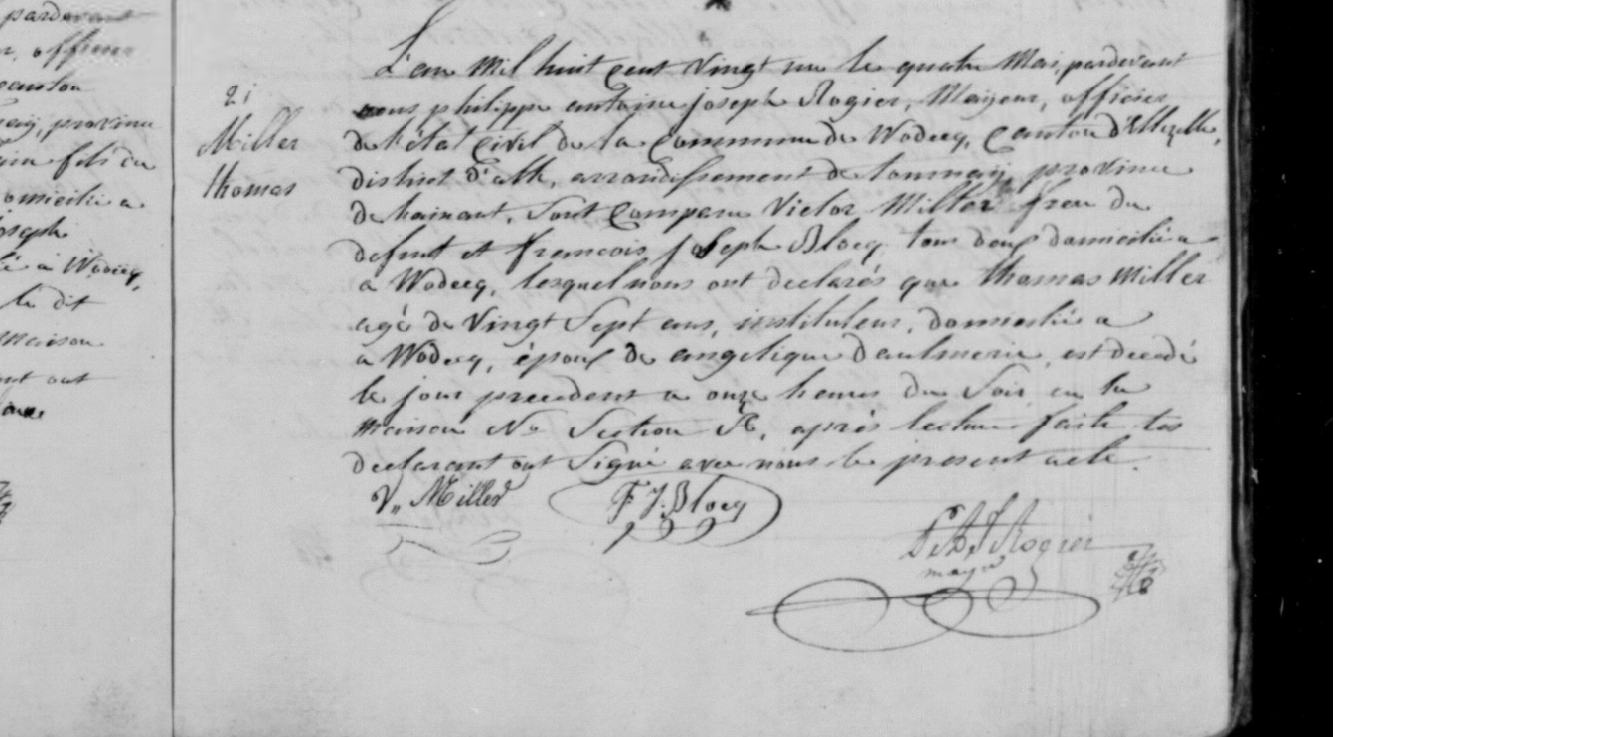 pardevant
, officier
canton
nay, province
fils de
domicilié a
joseph
é à Wodecq,
le dit
maison
ont
21
Miller
thomas
L'an Mil huit Cent Vingt un le quatre Mai, pardevant
nous philippe antoine joseph Rogier, Mayeur, officier
de l'état Civil de la Commune de Wodecq, Canton d'Ellezelle,
district d'ath, arrondissement de tournay, province
de hainaut, sont Comparu Victor Miller frere du
defunt et francois joseph Blocq tous deux domicilié a
a Wodecq, lesquel nous ont declarés que thomas Miller
agé de Vingt Sept ans, instituteur, domicilié a
a Wodecq, époux de angelique Daulmerie, est decedé
le jour precedent a onze heures du Soir en la
maison No Section, après lecture faite les
declarant ont Signé avec nous le present acte.
V. Miller
F. J. Blocq
P. A. J. Rogier
mayr